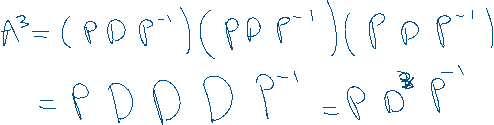 A³ = (P D P⁻¹)(P D P⁻¹)(P D P⁻¹)
= P D D D P⁻¹ = P D³ P⁻¹